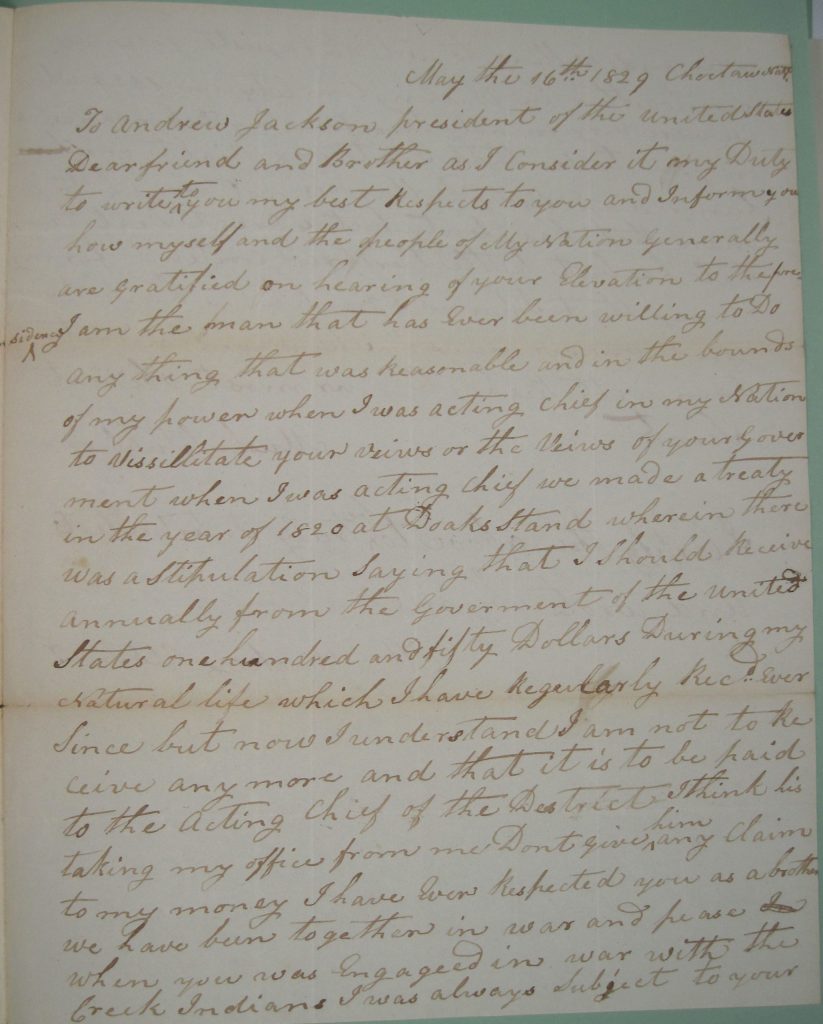 May the 16th 1829 Choctaw Natn
To Andrew Jackson president of the United States
Dear friend and Brother as I Consider it my Duty
to write to you my best Respects to you and Inform you
how myself and the people of My Nation Generally
are gratified on hearing of your Elevation to the pre-
sidency
I am the man that has Ever been willing to Do
any thing that was Reasonable and in the bounds
of my power when I was acting Chief in my Nation
to Vissillitate your veiws or the Veiws of your Gover
ment when I was acting Chief we made a treaty
in the year of 1820 at Doaks Stand wherein there
was a Stipulation Saying that I Should Receive
annually from the Goverment of the United
States one hundred and fifty Dollars During my
Natural life which I have Regullarly Recd Ever
Since but now I understand I am not to Re
ceive any more and that it is to be paid
to the Acting Chief of the Destrict I think his
taking my office from me Dont give him any Claim
to my money I have Ever Respected you as a brother
we have been together in war and pease In
when you was Engageed in war with the
Creek Indians I was always Subject to your